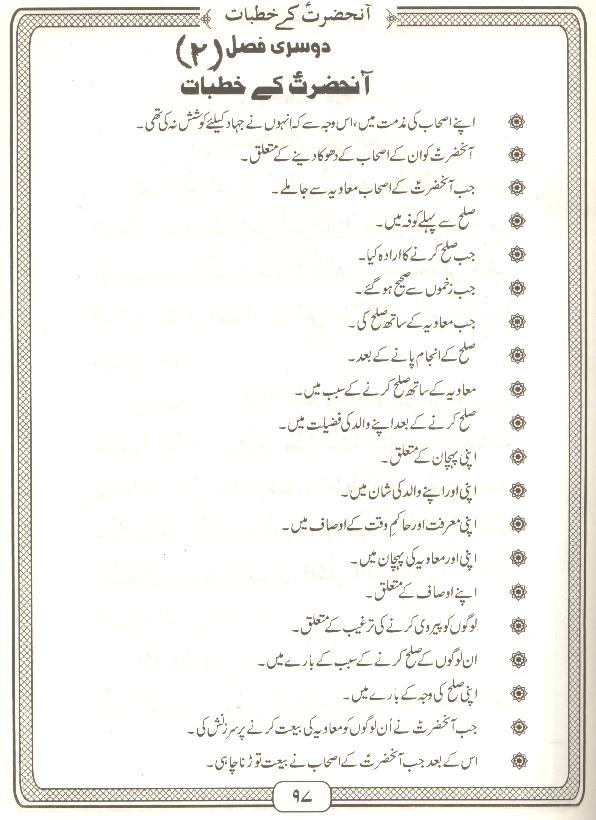 آنحضرتؑ کے خطبات
دوسری فصل (۲)
آنحضرتؑ کے خطبات
اپنے اصحاب کی مذمت میں، اس وجہ سے کہ انہوں نے جہاد کیلئے کوشش نہ کی تھی۔
آنحضرتؑ کو ان کے اصحاب کے دھوکا دینے کے متعلق۔
جب آنحضرتؑ کے اصحاب معاویہ سے جا ملے۔
صلح سے پہلے کوفہ میں۔
جب صلح کرنے کا ارادہ کیا۔
جب زخموں سے صحیح ہو گئے۔
جب معاویہ کے ساتھ صلح کی۔
صلح کے انجام پانے کے بعد۔
معاویہ کے ساتھ صلح کرنے کے سبب میں۔
صلح کرنے کے بعد اپنے والد کی فضیلت میں۔
اپنی پہچان کے متعلق۔
اپنی اور اپنے والد کی شان میں۔
اپنی معرفت اور حاکمِ وقت کے اوصاف میں۔
اپنی اور معاویہ کی پہچان میں۔
اپنے اوصاف کے متعلق۔
لوگوں کو پیروی کرنے کی ترغیب کے متعلق۔
ان لوگوں کے صلح کرنے کے سبب کے بارے میں۔
اپنی صلح کی وجہ کے بارے میں۔
جب آنحضرتؑ نے اُن لوگوں کو معاویہ کی بیعت کرنے پر سرزنش کی۔
اس کے بعد جب آنحضرتؑ کے اصحاب نے بیعت توڑنا چاہی۔
۹۷